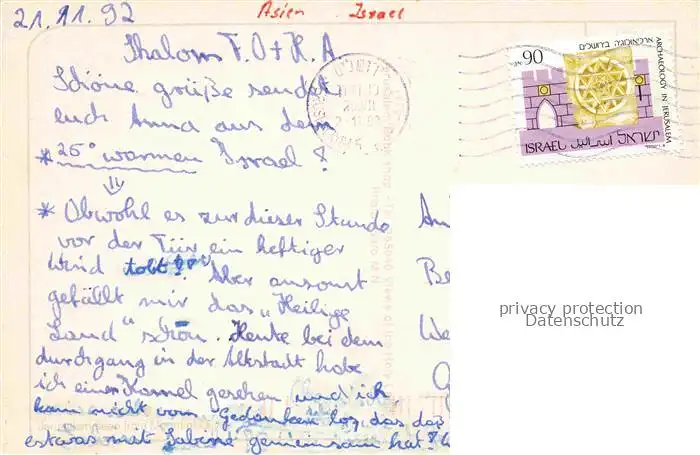 21.11.92
Asien Israel
Shalom T. O + K. A
Schöne grüße sendet
euch Anna aus dem
* 25° warmen Israel!
* Obwohl es zur dieser Stunde
vor der Tür ein heftiger
Wind tobt! Aber ansonst
gefällt mir das „Heilige
Land" schön. Heute bei dem
durchgang in der Altstadt habe
ich einen Kamel gesehen, und ich
kam nicht vom Gedanken los, das das
estwas mit Sabine gemeinsam hat!
90
ארכיאולוגיה בירושלים
ARCHAEOLOGY IN JERUSALEM
ISRAEL اسرائيل ישראל
privacy protection
Datenschutz